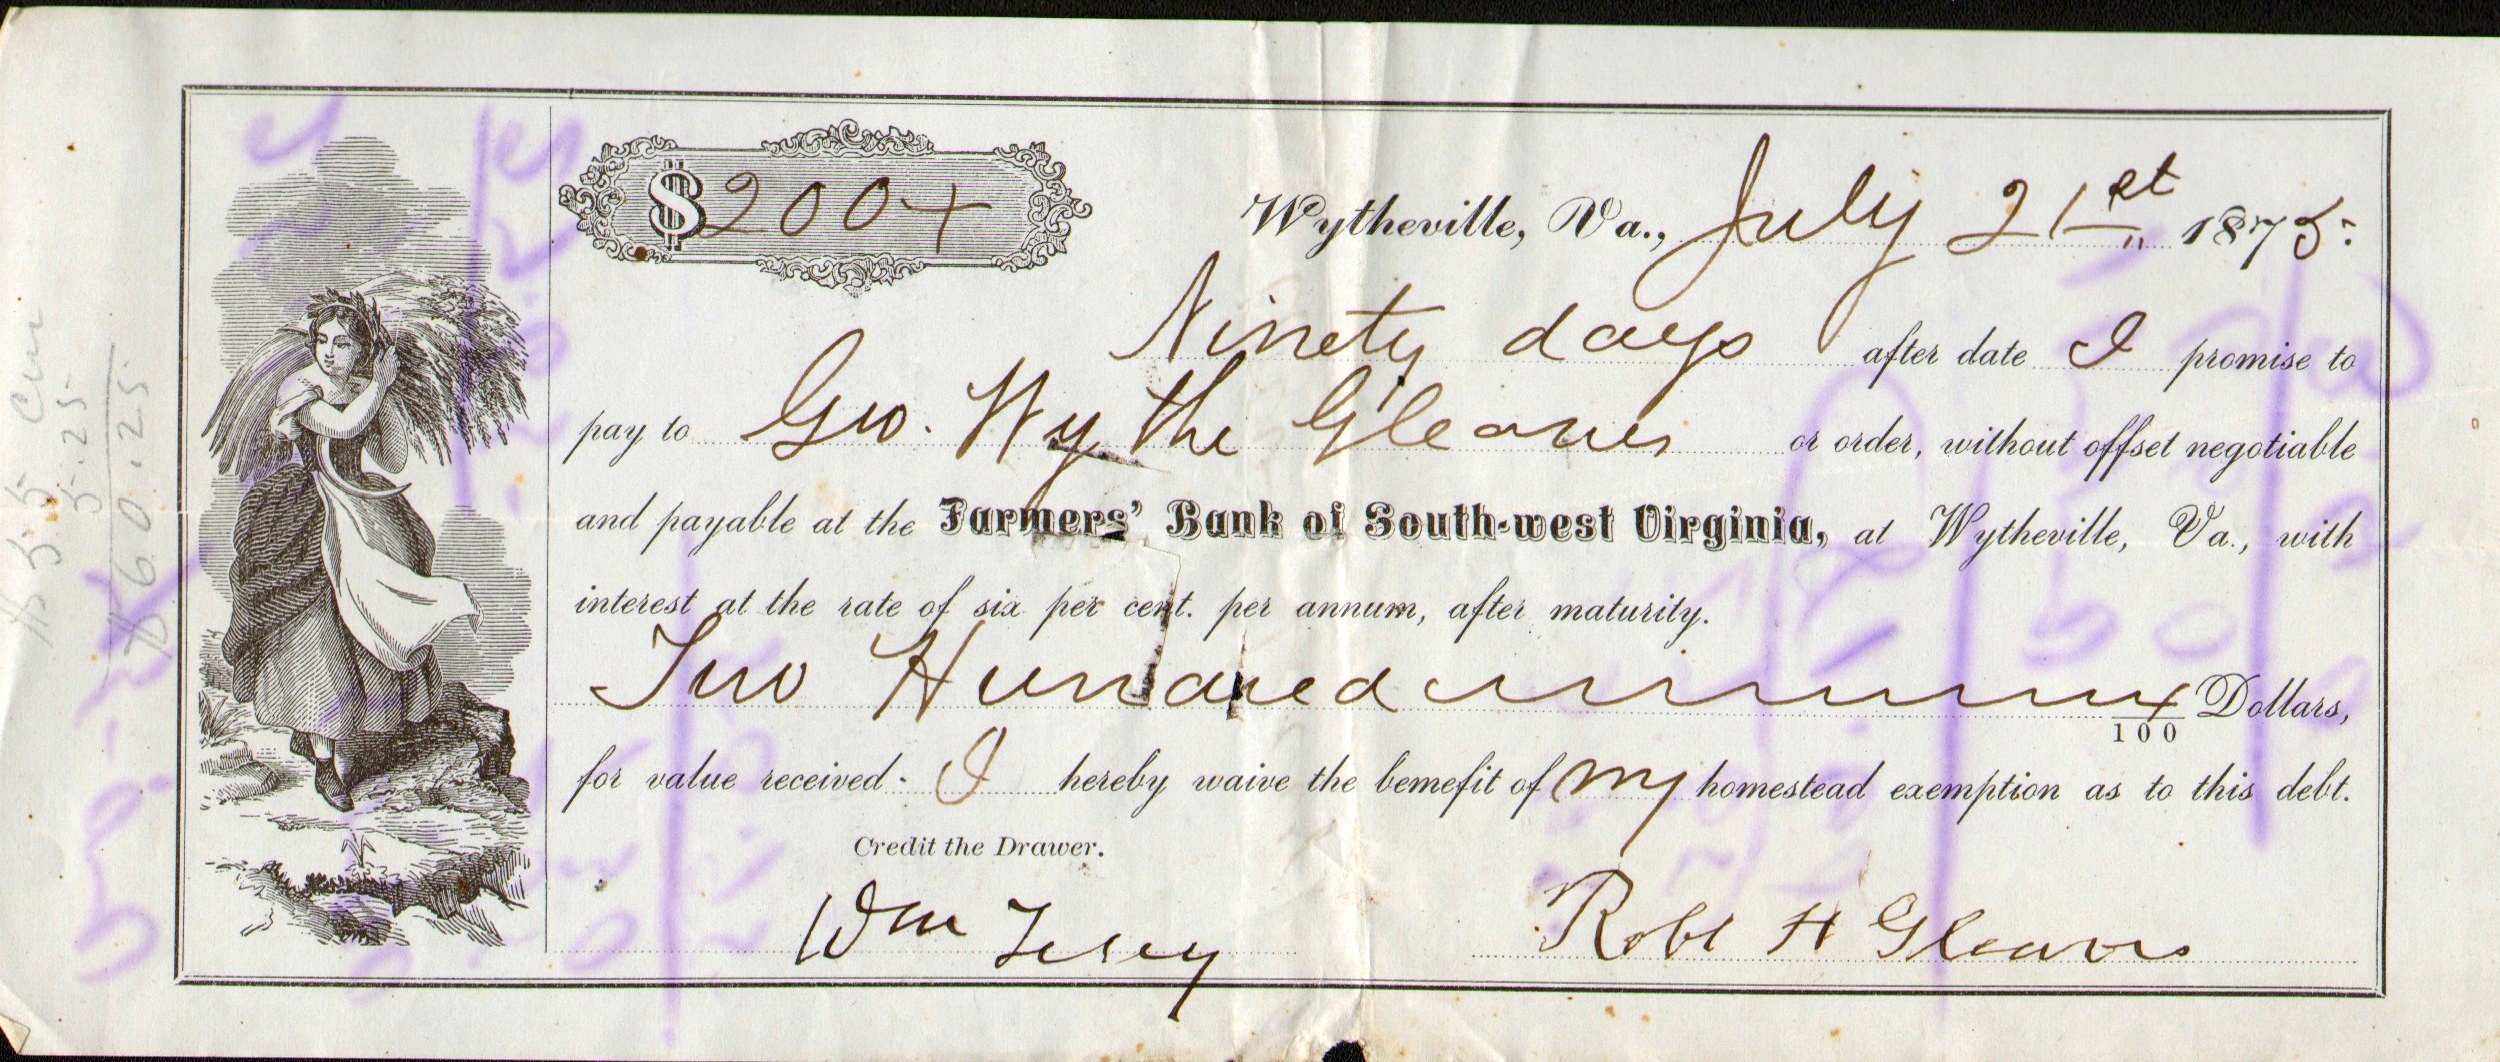 $ 200 +
Wytheville, Va., July 21st 1875.
Ninety days after date I promise to
pay to Geo. Wythe Gleaves or order, without offset negotiable
and payable at the Farmers' Bank of South-west Virginia, at Wytheville, Va., with
interest at the rate of six per cent. per annum, after maturity.
Two Hundred x/100 Dollars,
for value received. I hereby waive the bemefit of my homestead exemption as to this debt.
Credit the Drawer.
Wm Terry
Robt H Gleaves
5.25
$ 60.25